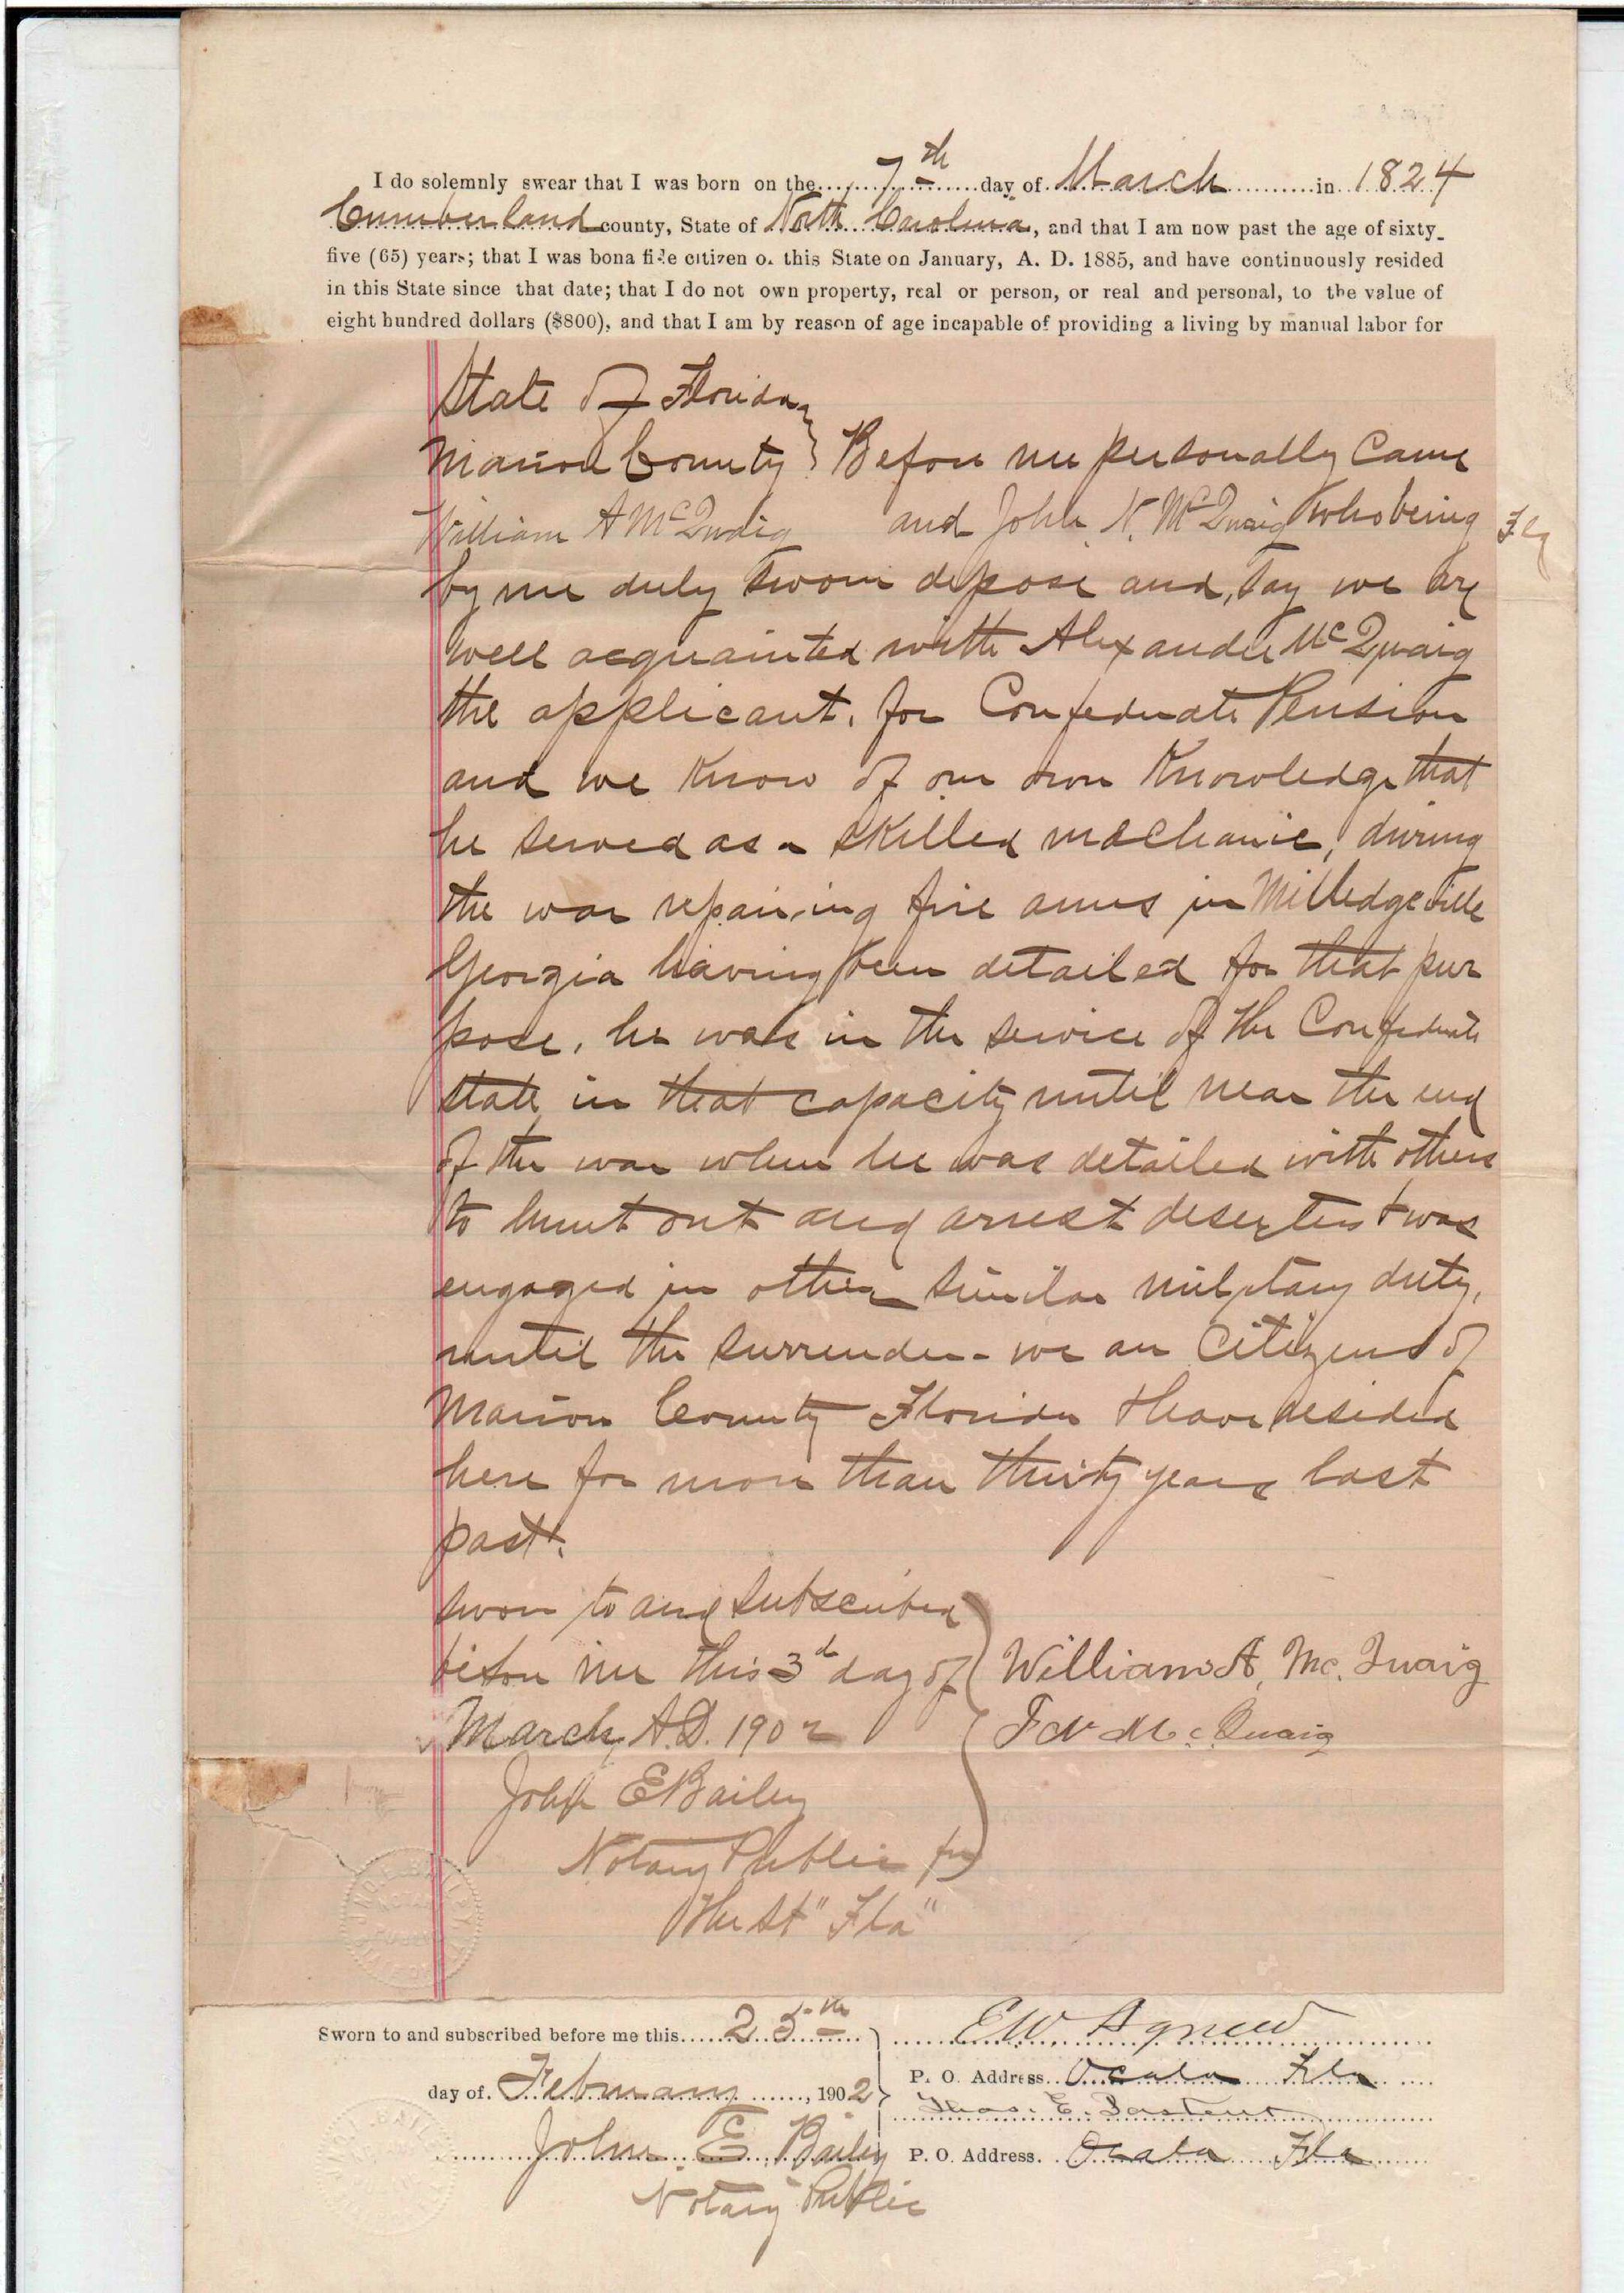 I do solemnly swear that I was born on the 7th day of March in 1824
Cumberland county, State of North Carolina, and that I am now past the age of sixty-
five (65) years; that I was bona fide citizen of this State on January, A. D. 1885, and have continuously resided
in this State since that date; that I do not own property, real or person, or real and personal, to the value of
eight hundred dollars ($800), and that I am by reason of age incapable of providing a living by manual labor for
State of Florida
Marion County } Before me personally Came
William A McQuaig and John N. McQuaig who being
Fla
by me duly sworn depose and, say we are
well acquainted with Alexander McQuaig
the applicant. for Confederate Pension
and we Know of our own Knowledge that
he served as a skilled mechanic, during
the war repairing fire arms in Milledgeville
Georgia having been detailed for that pur
pose, he was in the service of the Confederate
state in that capacity until near the end
of the war when he was detailed with others
to hunt out and arrest deserters & was
engaged in other similar military duty,
until the surrender - we are Citizens of
Marion County Florida & have resided
here for more than thirty years last
past.
sworn to and subscribed
before me this 3d day of William A, Mc. Quaig
March, A.D. 1902 J N McQuaig
John E Bailey
Notary Public for
the St "Fla"
Sworn to and subscribed before me this 25th E W Agnew
day of February, 1902 P. O. Address. Ocala Fla
Thos. E.
John E Bailey P. O. Address. Ocala Fla
Notary Public